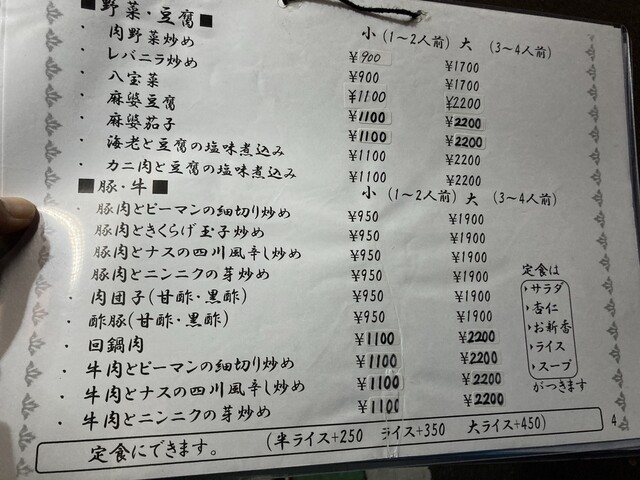 ■野菜・豆腐■ 小 (1〜2人前) 大 (3〜4人前)
・肉野菜炒め ¥900 ¥1700
・レバニラ炒め ¥900 ¥1700
・八宝菜 ¥1100 ¥2200
・麻婆豆腐 ¥1100 ¥2200
・麻婆茄子 ¥1100 ¥2200
・海老と豆腐の塩味煮込み ¥1100 ¥2200
・カニ肉と豆腐の塩味煮込み ¥1100 ¥2200
■豚・牛■ 小 (1〜2人前) 大 (3〜4人前)
・豚肉とピーマンの細切り炒め ¥950 ¥1900
・豚肉ときくらげ玉子炒め ¥950 ¥1900
・豚肉とナスの四川風辛し炒め ¥950 ¥1900
・豚肉とニンニクの芽炒め ¥950 ¥1900
・肉団子(甘酢・黒酢) ¥950 ¥1900
・酢豚(甘酢・黒酢) ¥950 ¥1900
・回鍋肉 ¥1100 ¥2200
・牛肉とピーマンの細切り炒め ¥1100 ¥2200
・牛肉とナスの四川風辛し炒め ¥1100 ¥2200
・牛肉とニンニクの芽炒め ¥1100 ¥2200
定食は
・サラダ
・杏仁
・お新香
・ライス
・スープ
がつきます
定食にできます。 (半ライス+250 ライス+350 大ライス+450)
4